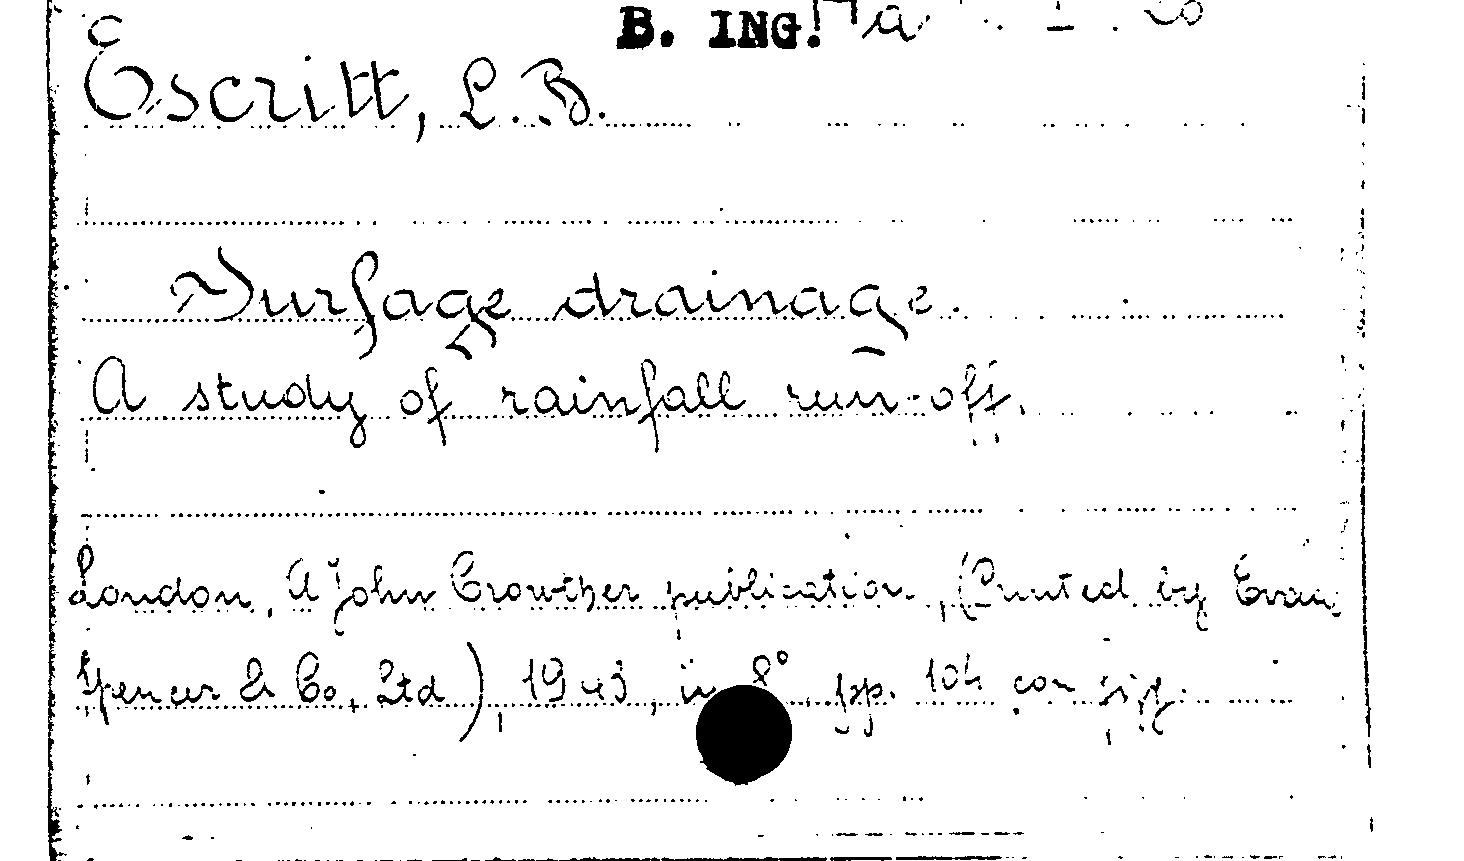 B. ING.
Escritt, L. B.
Surface drainage.
A study of rainfall run-off.
London, A John Crowther publication, (Printed by Evan
Spencer & Co, Ltd), 1943, in 8°, pp. 104 con fig.